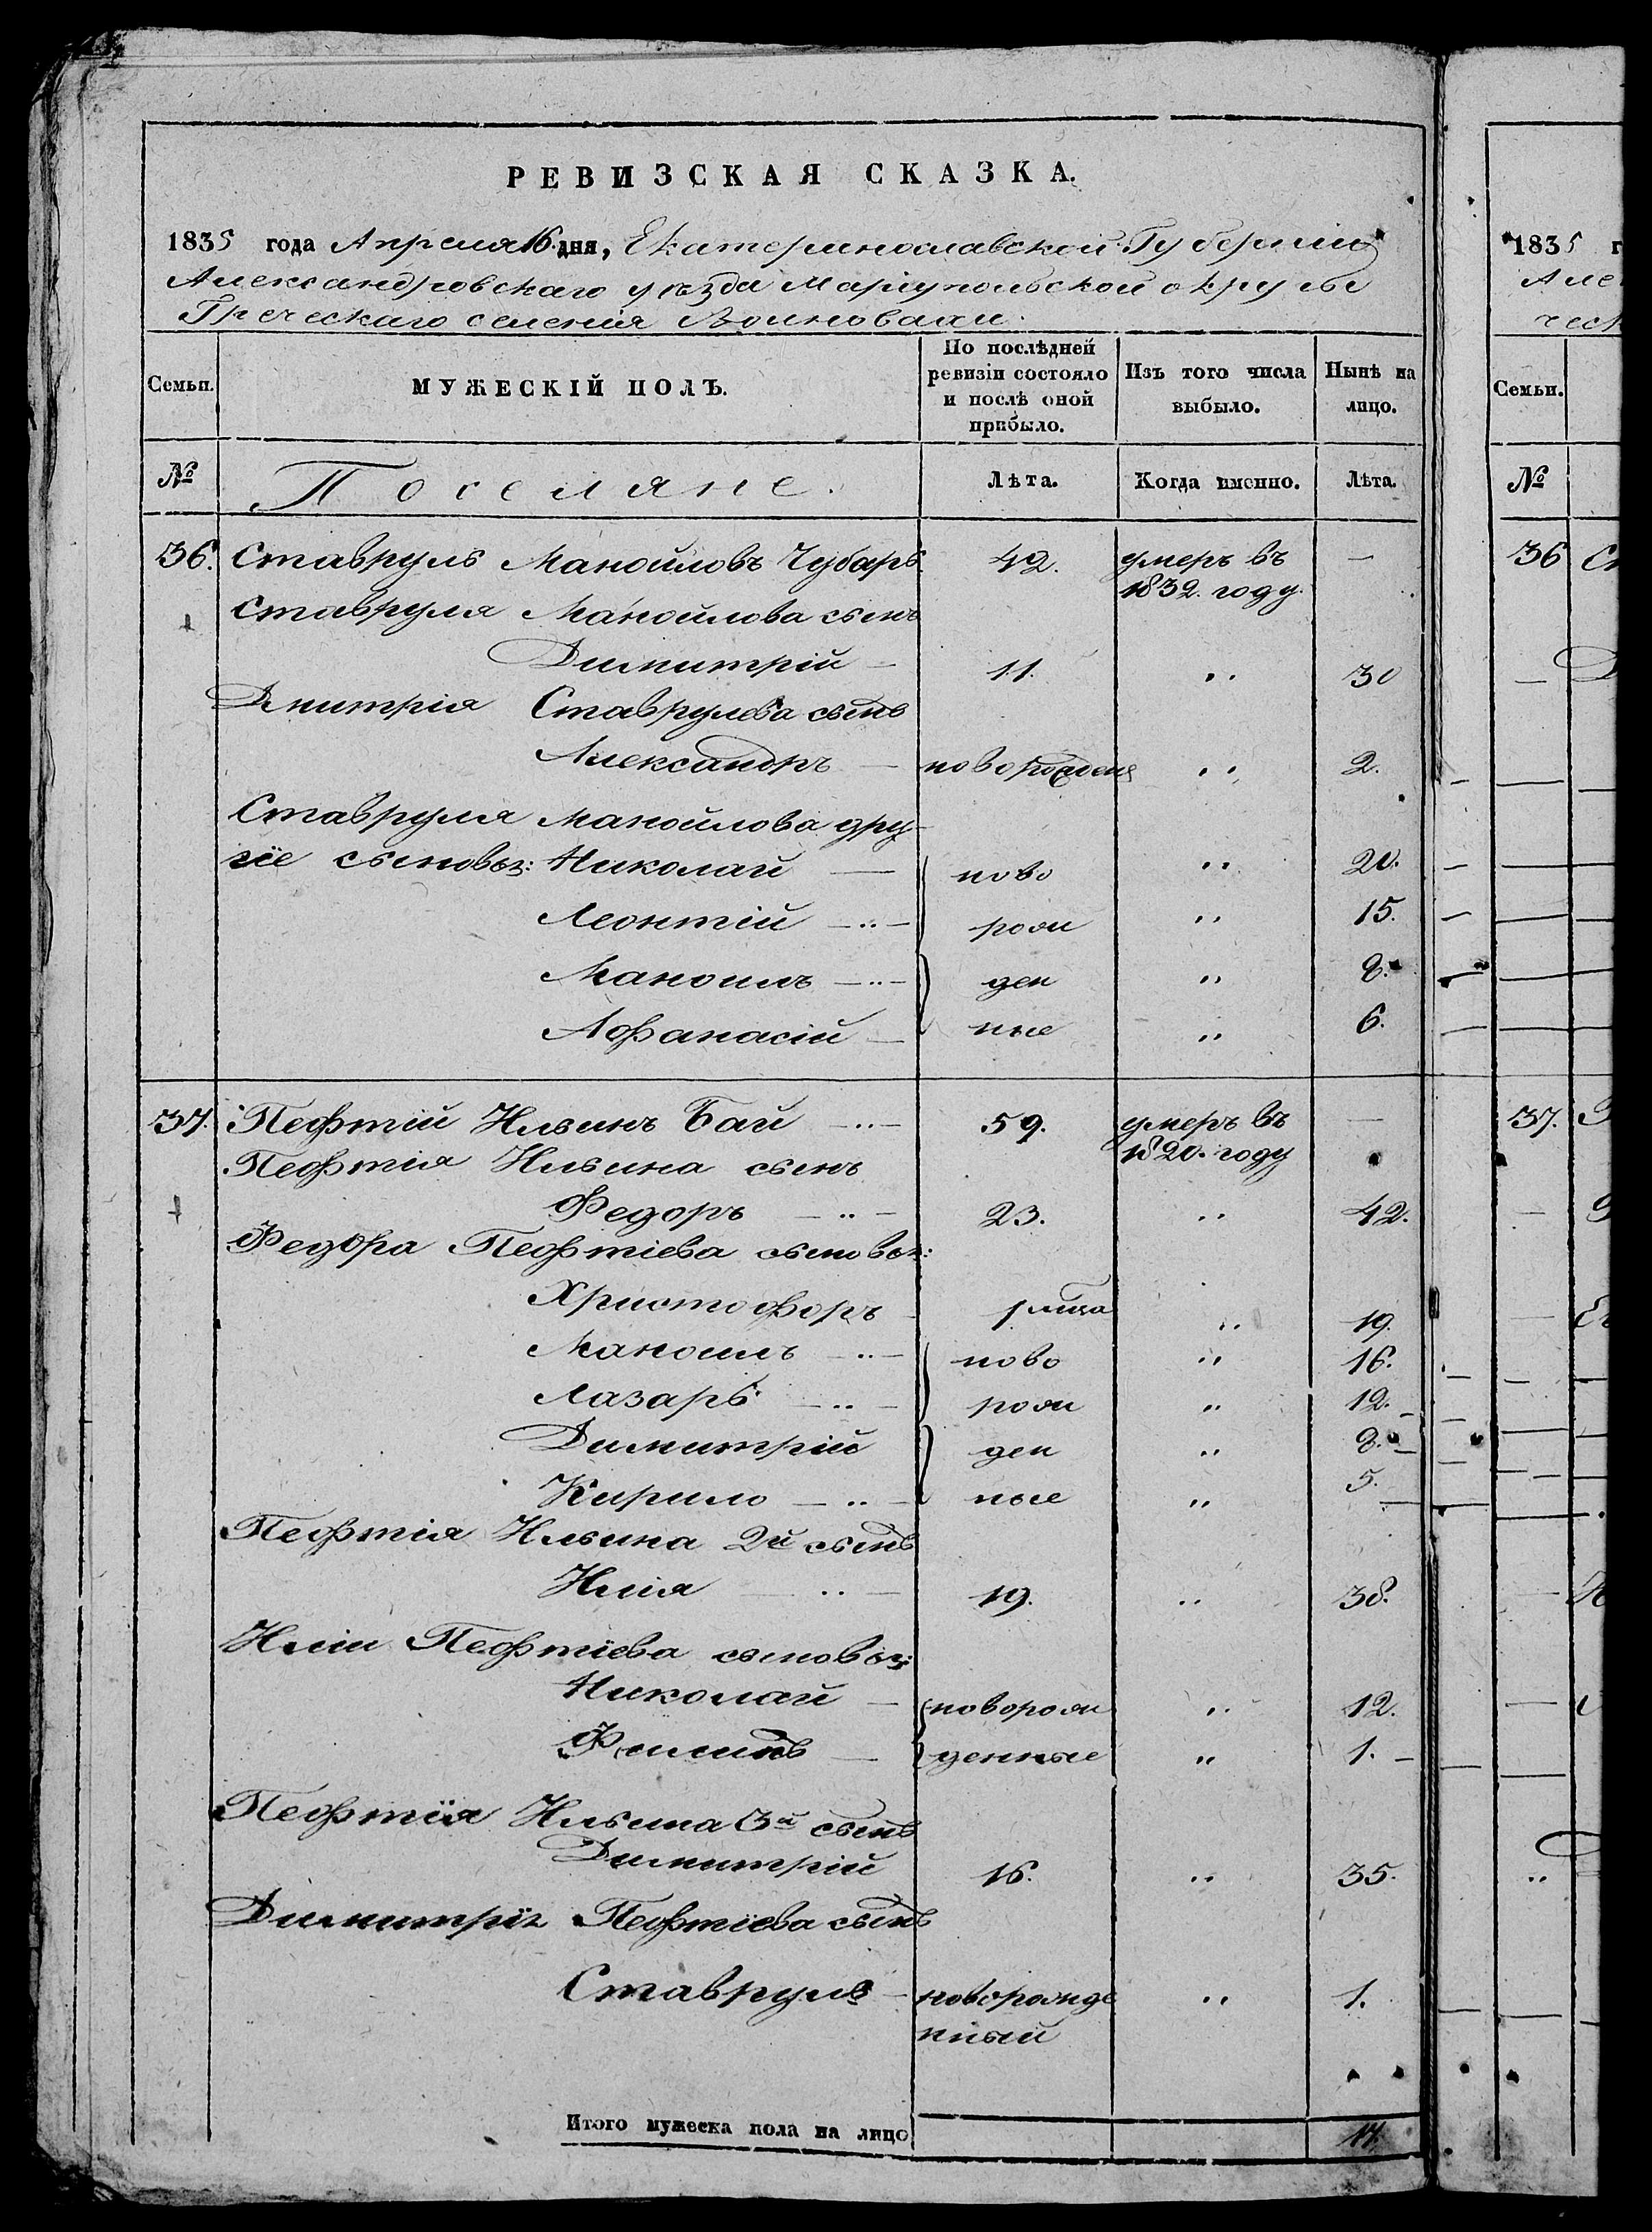 РЕВИЗСКАЯ СКАЗКА.
1835 года Апреля 16 дня, Екатеринославской Губерніи
Александровскаго уѣзда Маріупольской округи
Греческаго селенія
Семьи. МУЖЕСКІЙ ПОЛЪ. По послѣдней ревизіи состояло и послѣ оной прибыло. Изъ того числа выбыло. Нынѣ на лицо.
№ Поселяне. Лѣта. Когда именно. Лѣта.
36. Ставруль Манойловъ Чубарь 42. умеръ въ 1832. году. —
Ставруля Манойлова сынъ
Димитрій — 11. „ 30
Дмитрія Ставрулева сынъ
Александръ — новорожден „ 2.
Ставруля Манойлова дру-
гіе сыновья: Николай — ново „ 20.
Леонтій —„— рож „ 15.
Маноилъ —„— ден „ 8.
Афанасій — ные „ 6.
37. Пефтій Ильинъ Бай —„— 59. умеръ въ 1820. году —
Пефтія Ильина сынъ
Федоръ —„— 23. „ 42.
Федора Пефтіева сыновья:
Христофоръ 1 мѣсца „ 19.
Маноилъ —„— ново „ 16.
Лазарь —„— рож „ 12.
Димитрій ден „ 8.
Кирило —„— ные „ 5.
Пефтія Ильина 2й сынъ
Илія —„— 19. „ 38.
Иліи Пефтіева сыновья:
Николай — новорож „ 12.
Филипъ — денные „ 1.
Пефтія Ильина 3й сынъ
Димитрій 16. „ 35.
Димитрія Пефтіева сынъ
Ставруль — новорожде „ 1.
нный
Итого мужеска пола на лицо 17.
1835 г
Але
ческ
Семьи.
№
36
37.